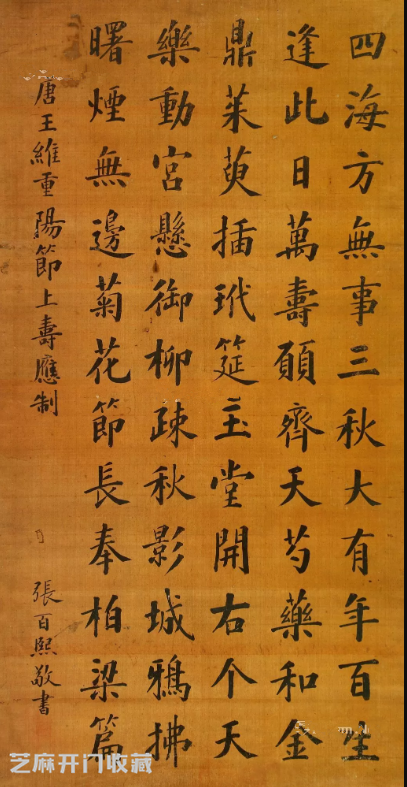 四海方無事三秋大有年百生
逢此日萬壽願齊天芍藥和金
鼎茱萸插玳筵玉堂開右个天
樂動宮懸御柳疎秋影城鴉拂
曙煙無邊菊花節長奉柏梁篇
唐王維重陽節上壽應制
張百熙敬書
芝麻开门收藏